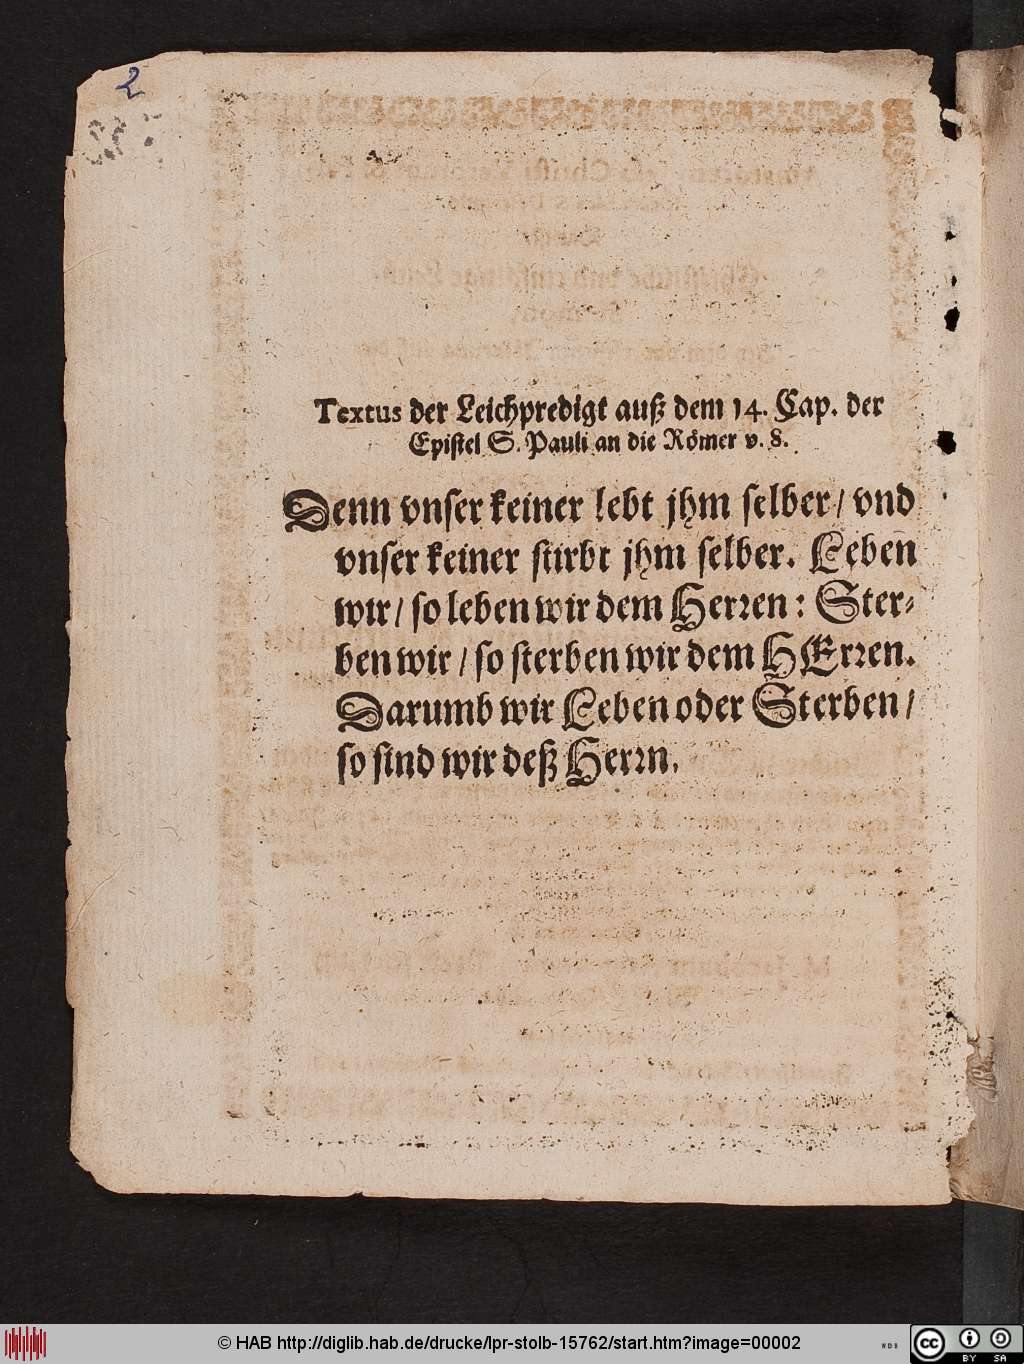 2
Textus der Leichpredigt auß dem 14. Cap. der
Epistel S. Pauli an die Römer v. 8.
Denn vnser keiner lebt jhm selber / vnd
vnser keiner stirbt jhm selber. Leben
wir / so leben wir dem Herren: Ster⸗
ben wir / so sterben wir dem HErren.
Darumb wir Leben oder Sterben /
so sind wir deß Herrn.
© HAB http://diglib.hab.de/drucke/lpr-stolb-15762/start.htm?image=00002
WDB
cc BY SA